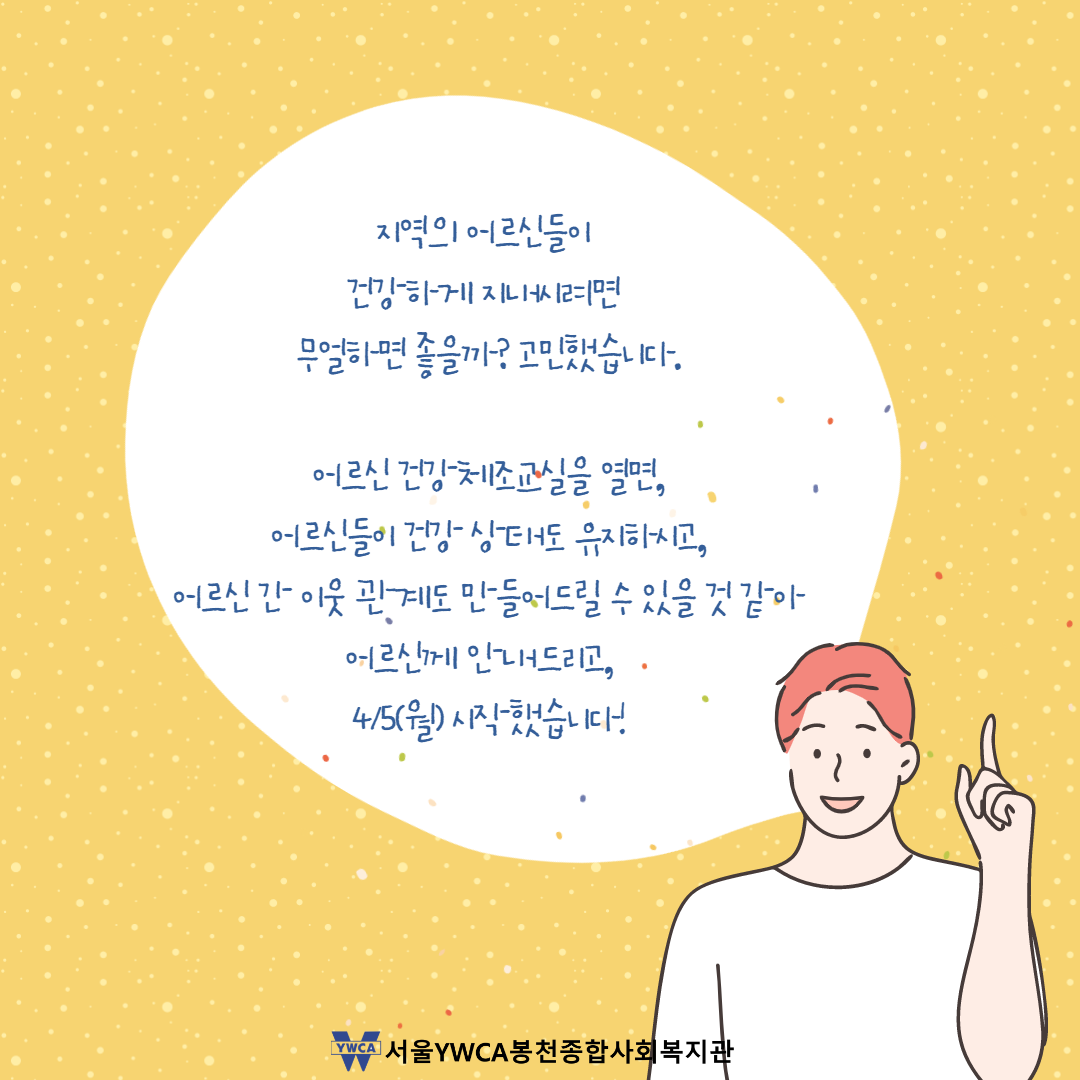 지역의 어르신들이
건강하게 지내시려면
무얼하면 좋을까? 고민했습니다.
어르신 건강체조교실을 열면,
어르신들이 건강 상태도 유지하시고,
어르신 간 이웃 관계도 만들어드릴 수 있을 것 같아
어르신께 안내드리고,
4/5(월) 시작했습니다!
YWCA 서울YWCA봉천종합사회복지관